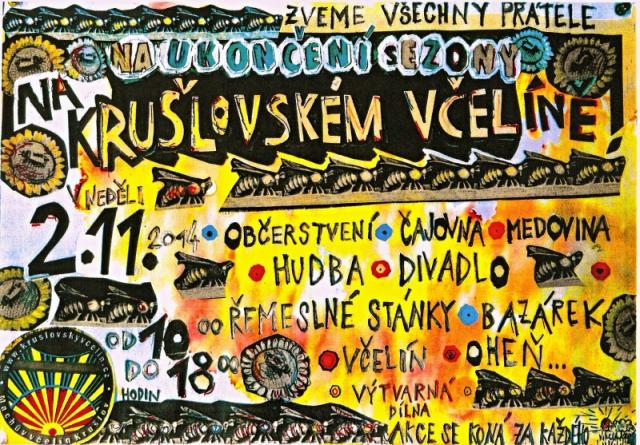 ZVEME VŠECHNY PŘÁTELE
NA UKONČENÍ SEZONY
NA
KRUŠLOVSKÉM VČELÍNĚ
V NEDĚLI
2.11.2014
OBČERSTVENÍ ČAJOVNA MEDOVINA
HUDBA DIVADLO
OD 10 00
ŘEMESLNÉ STÁNKY BAZÁREK
DO 18 00
HODIN
VČELÍN OHEŇ...
VÝTVARNÁ
DÍLNA
AKCE SE KONÁ ZA KAŽDÉHO
www.kruslovskyvcelin.cz